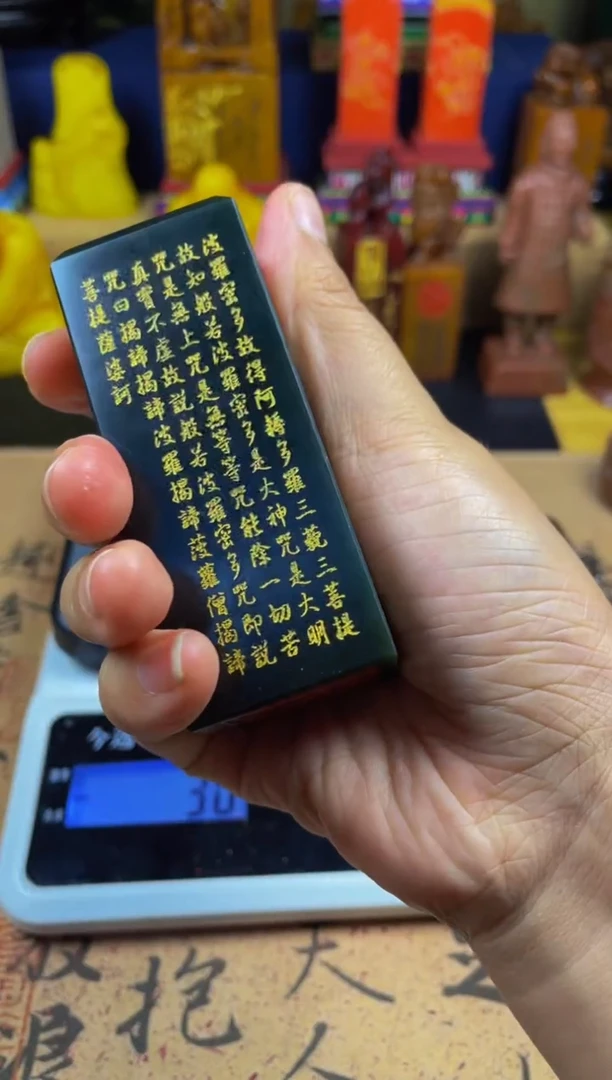 波羅密多故得阿耨多羅三藐三菩提
故知般若波羅密多是大神咒是大明
咒是無上咒是無等等咒能除一切苦
真實不虛故説般若波羅密多咒即説
咒曰揭諦揭諦波羅揭諦菠蘿僧揭諦
菩提薩婆訶
30
抱
大
人